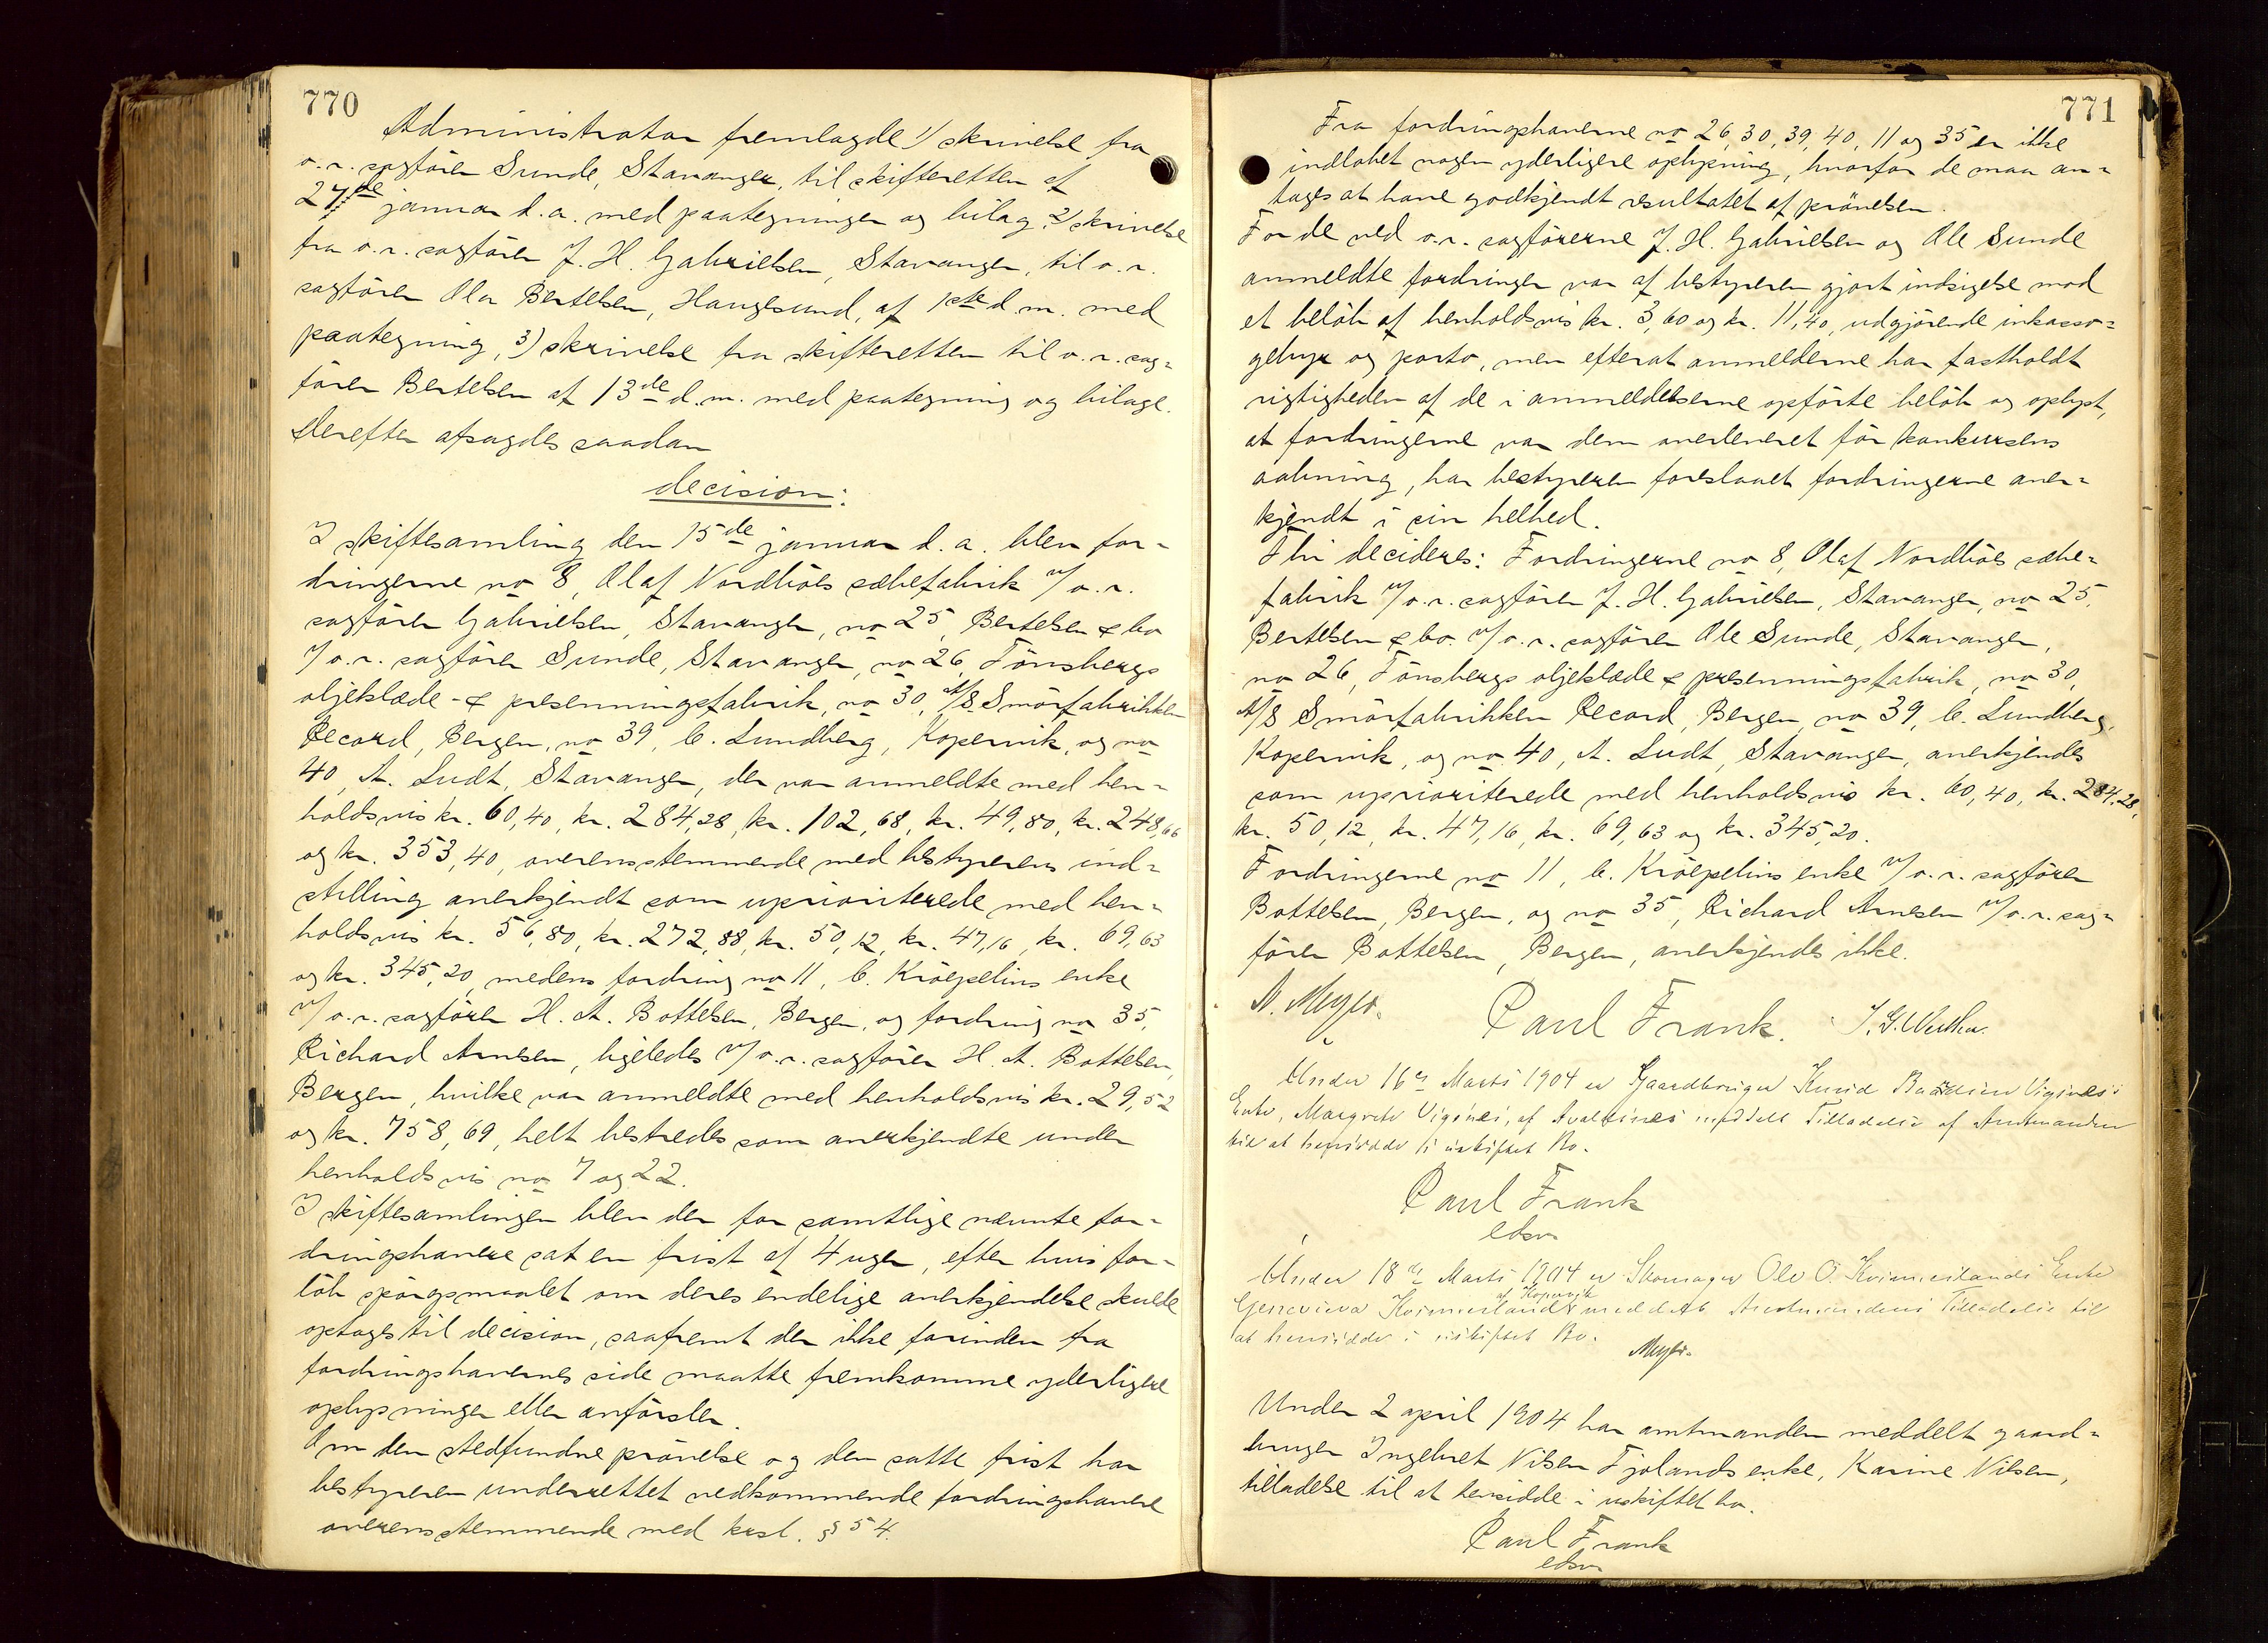 770
Administrator fremlagde 1) skrivelse fra
o.r. sagfører Sunde, Stavanger, til skifteretten af
27de januar d.a. med paategninger og bilag, 2) skrivelse
fra o.r. sagfører J. H. Gabrielsen, Stavanger, til o.r.
sagfører Ola Bertelsen, Haugesund, af 1ste d.m. med
paategning, 3) skrivelse fra skifteretten til o.r. sag=
fører Bertelsen af 13de d.m. med paategning og bilage.
Derefter afsagdes saadan
decision:
I skiftesamling den 15de januar d.a. blev for-
dringerne no 8, Olaf Nordbös sæbefabrik v/ o.r.
sagfører Gabrielsen, Stavanger, no 25, Bertelsen & Co
v/ o.r. sagfører Sunde, Stavanger, no 26, Tönsbergs
oljeklæde- & presenningsfabrik, no 30, A/S Smörfabrikken
Record, Bergen, no 39, C. Lundberg, Kopervik, og no
40, A. Ludt, Stavanger, der var anmeldte med hen=
holdsvis kr. 60,40, kr. 284,28, kr. 102,68, kr. 49,80, kr. 248,66
og kr. 353,40, overensstemmende med bestyrerens ind=
stilling anerkjendt som uprioriterede med hen=
holdsvis kr. 56,80, kr. 272,88, kr. 50,12, kr. 47,16, kr. 69,63
og kr. 345,20, medens fordring no 11, C. Kröepelins enke
v/ o.r. sagfører H. A. Bottelsen, Bergen, og fordring no 35,
Richard Arnesen, ligeledes v/ o.r. sagfører H. A. Bottelsen,
Bergen, hvilke var anmeldte med henholdsvis kr. 29,52
og kr. 758,69, helt bestredes som anerkjendte under
henholdsvis no 7 og 22.
I skiftesamlingen blev der for samtlige nævnte for-
dringshavere sat en frist af 4 uger, efter hvis for-
löb spörgsmaalet om deres endelige anerkjendelse skulde
optages til decision, saafremt der ikke forinden fra
fordringshavernes side maatte fremkomme yderligere
oplysninger eller anförsler.
Om den stedfundne prövelse og den satte frist har
bestyreren underrettet vedkommende fordringshavere
overensstemmende med krsl. § 54.
771
Fra fordringshaverne no 26, 30, 39, 40, 11 og 35 er ikke
indløbet nogen yderligere oplysning, hvorfor de maa an=
tages at have godkjendt resultatet af prövelsen.
For de ved o.r. sagförerne J. H. Gabrielsen og Ole Sunde
anmeldte fordringer var af bestyreren gjort indsigelse mod
et belöb af henholdsvis kr. 3,60 og kr. 11,40, udgjörende inkasso=
gebyr og porto, men efterat anmelderne har fastholdt
rigtigheden af de i anmeldelserne opförte belöb og oplyst,
at fordringerne var dem overleveret för konkursens
aabning, har bestyreren foreslaaet fordringerne aner=
kjendt i sin helhed.
Thi decideres: Fordringerne no 8, Olaf Nordbös sæbe=
fabrik v/ o.r. sagförer J. H. Gabrielsen, Stavanger, no 25,
Bertelsen & Co. v/ o.r. sagförer Ole Sunde, Stavanger,
no 26, Tönsbergs oljeklæde & presenningsfabrik, no 30,
A/S Smörfabrikken Record, Bergen, no 39, C. Lundberg,
Kopervik, og no 40, A. Ludt, Stavanger, anerkjendes
som uprioriterede med henholdsvis kr. 60,40, kr. 284,28,
kr. 50,12, kr. 47,16, kr. 69,63 og kr. 345,20.
Fordringerne no 11, C. Kröepelins enke v/ o.r. sagförer
Bottelsen, Bergen, og no 35, Richard Arnesen v/ o.r. sag=
förer Bottelsen, Bergen, anerkjendes ikke.
Meyer. Paul Frank. J. G.
Under 16de Marts 1904 er Gaardbruger Knud
Enke, Margrete af Avaldsnes meddelt Tilladelse af Amtmanden
til at hensidde i uskiftet Bo.
Paul Frank
edsv
Under 18de Marts 1904 er Skomager Ole O. Enke
af Kopervik
meddelt Amtmandens Tilladelse til
at hensidde i uskiftet Bo.
Meyer.
Under 2 april 1904 har amtmanden meddelt gaard=
bruger Ingebret Nilsen Fjolands enke, Karine Nilsen,
tilladelse til at hensidde i uskiftet bo.
Paul Frank
edsv